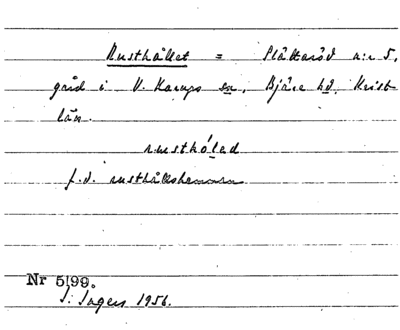 Rusthållet = Slättaröd n:r 5,
gård i V. Karups sn, Bjäre hd, Krist
län.
rusthó̜led
f.d. rusthållshemman
Nr 5199.
I. Ingers 1956.